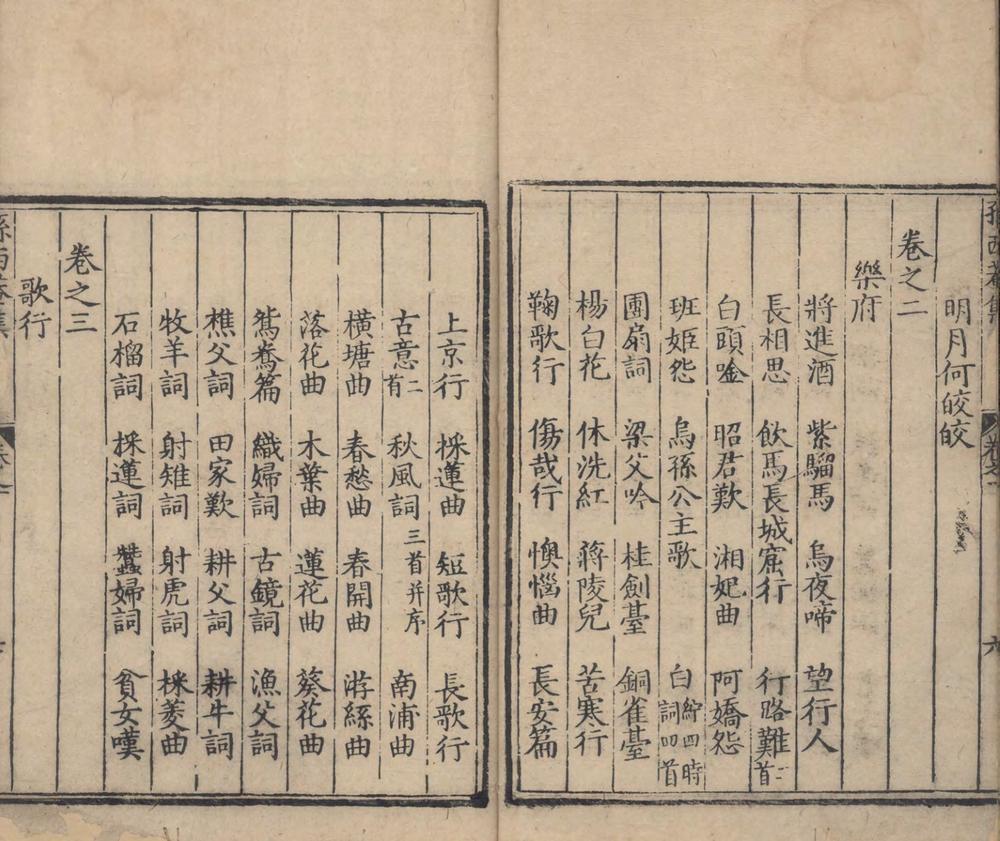 明月何皎皎
卷之二
樂府
將進酒 紫騮馬 烏夜啼 望行人
長相思 飲馬長城窟行 行路難二首
白頭唫 昭君歎 湘妃曲 阿嬌怨
班姬怨 烏孫公主歌 白紵四時詞四首
團扇詞 梁父吟 桂劍臺 銅雀臺
楊白花 休洗紅 蔣陵兒 苦寒行
鞠歌行 傷哉行 懊惱曲 長安篇
上京行 採蓮曲 短歌行 長歌行
古意二首 秋風詞三首并序 南浦曲
橫塘曲 春愁曲 春閨曲 游絲曲
落花曲 木葉曲 蓮花曲 葵花曲
鴛鴦篇 織婦詞 古鏡詞 漁父詞
樵父詞 田家歎 耕父詞 耕牛詞
牧羊詞 射雉詞 射虎詞 採菱曲
石榴詞 採蓮詞 蠶婦詞 貧女嘆
卷之三
歌行